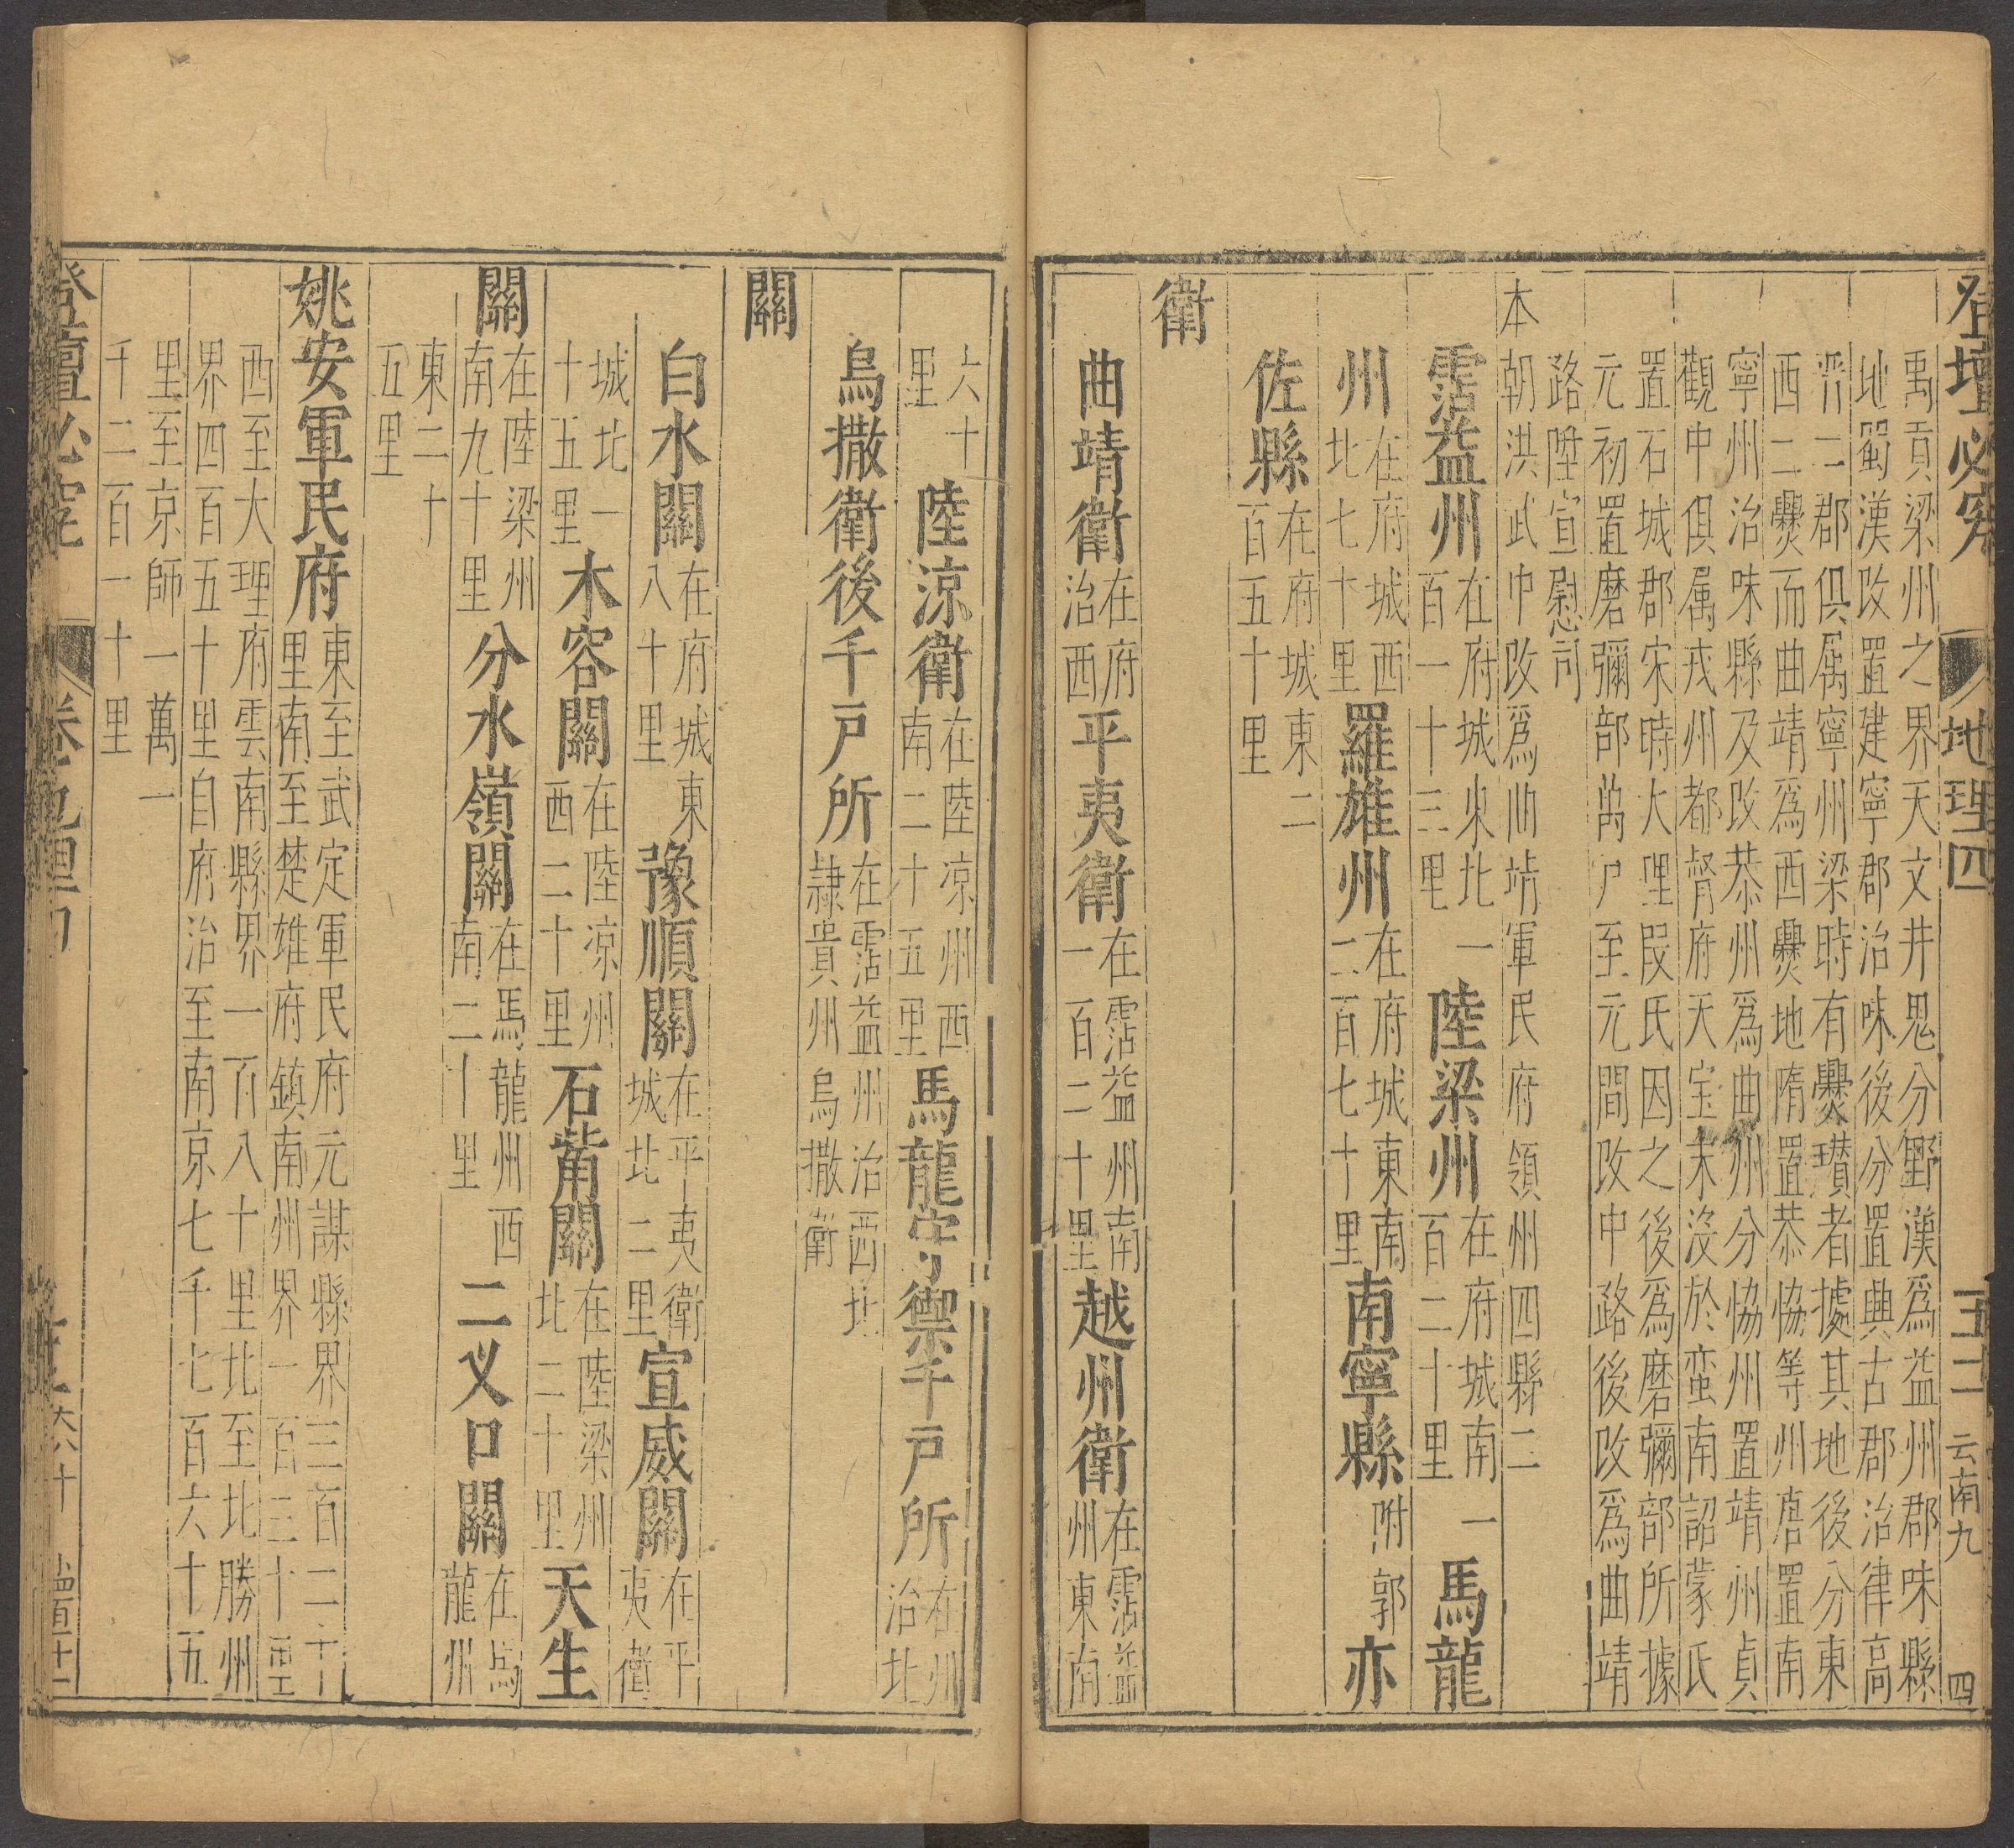 登壇必究 地理四 五二 云南九 四
禹貢梁州之界天文井鬼分野漢爲益州郡味縣
地蜀漢改置建寧郡治味後分置興古郡治律高
晋二郡俱属寧州梁時有爨瓉者據其地後分東
西二爨而曲靖爲西爨地隋置恭恊等州唐置南
寧州治味縣及改恭州爲曲州分恊州置靖州貞
觀中俱属戎州都督府天宝末没於蛮南詔蒙氏
置石城郡宋時大理段氏因之後爲磨彌部所據
元初置磨彌部萬户至元間改中路後改爲曲靖
路陞宣慰司
本朝洪武中改爲曲靖軍民府領州四縣二
霑益州在府城東北一百一十三里 陸梁州在府城南一百二十里 馬龍
州在府城西北七十里 羅雄州在府城東南二百七十里 南寧縣附郭 亦
佐縣在府城東二百五十里
衛
曲靖衛在府治西 平夷衛在霑益州南一百二十里 越州衛在霑益州東南
六十里 陸凉衛在陸凉州西南二十五里 馬龍守禦千戸所在州治北
烏撒衛後千戸所在霑益州治西北隸貴州烏撒衛
關
白水關在府城東八十里 豫順關在平夷衛城北二里 宣威關在平夷衛
城北一十五里 木容關在陸凉州西二十里 石觜關在陸梁州北二十里 天生
關在陸梁州南九十里 分水嶺關在馬龍州西南二十里 二乂口關在馬龍州
東二十五里
姚安軍民府東至武定軍民府元謀縣界三百二十里南至楚雄府鎮南州界一百三十里
西至大理府雲南縣界一百八十里北至北勝州界四百五十里自府治至南京七千七百六十五
里至京師一萬一千二百一十里
登壇必究 卷 地理四 大六十 小四百二十二